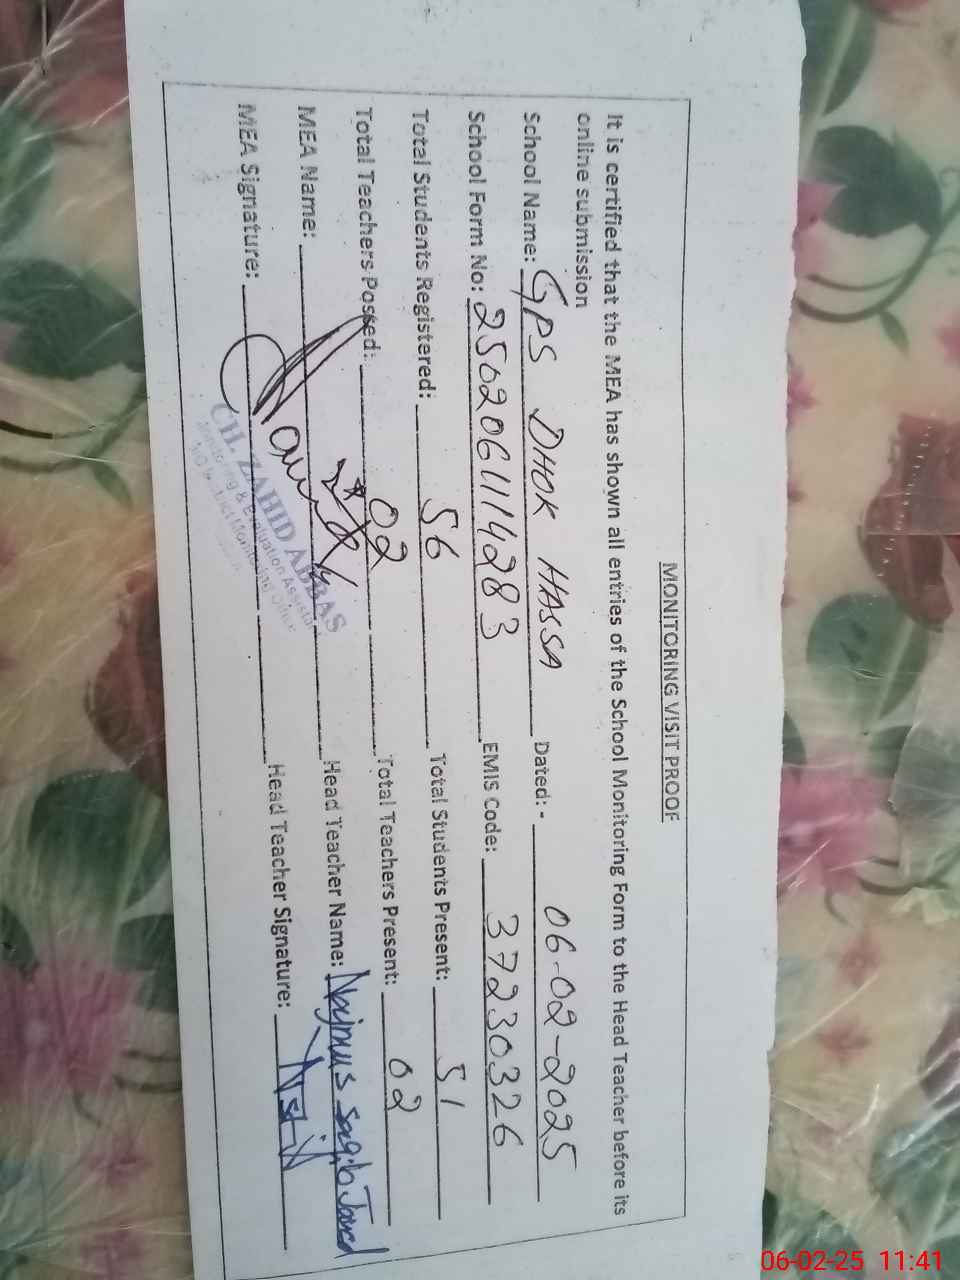 MONITORING VISIT PROOF
It is certified that the MEA has shown all entries of the School Monitoring Form to the Head Teacher before its
online submission
School Name: GPS DHOK HASSA Dated:- 06-02-2025
School Form No: 2502061114283 EMIS Code: 37230326
Total Students Registered: 56 Total Students Present: 51
Total Teachers Posted: 02 Total Teachers Present: 02
MEA Name: Head Teacher Name: Najmus Saqib Javed
MEA Signature: Head Teacher Signature:
CH. ZAHID ABBAS
Monitoring & Evaluation Assistant
District Monitoring Office
06-02-25 11:41